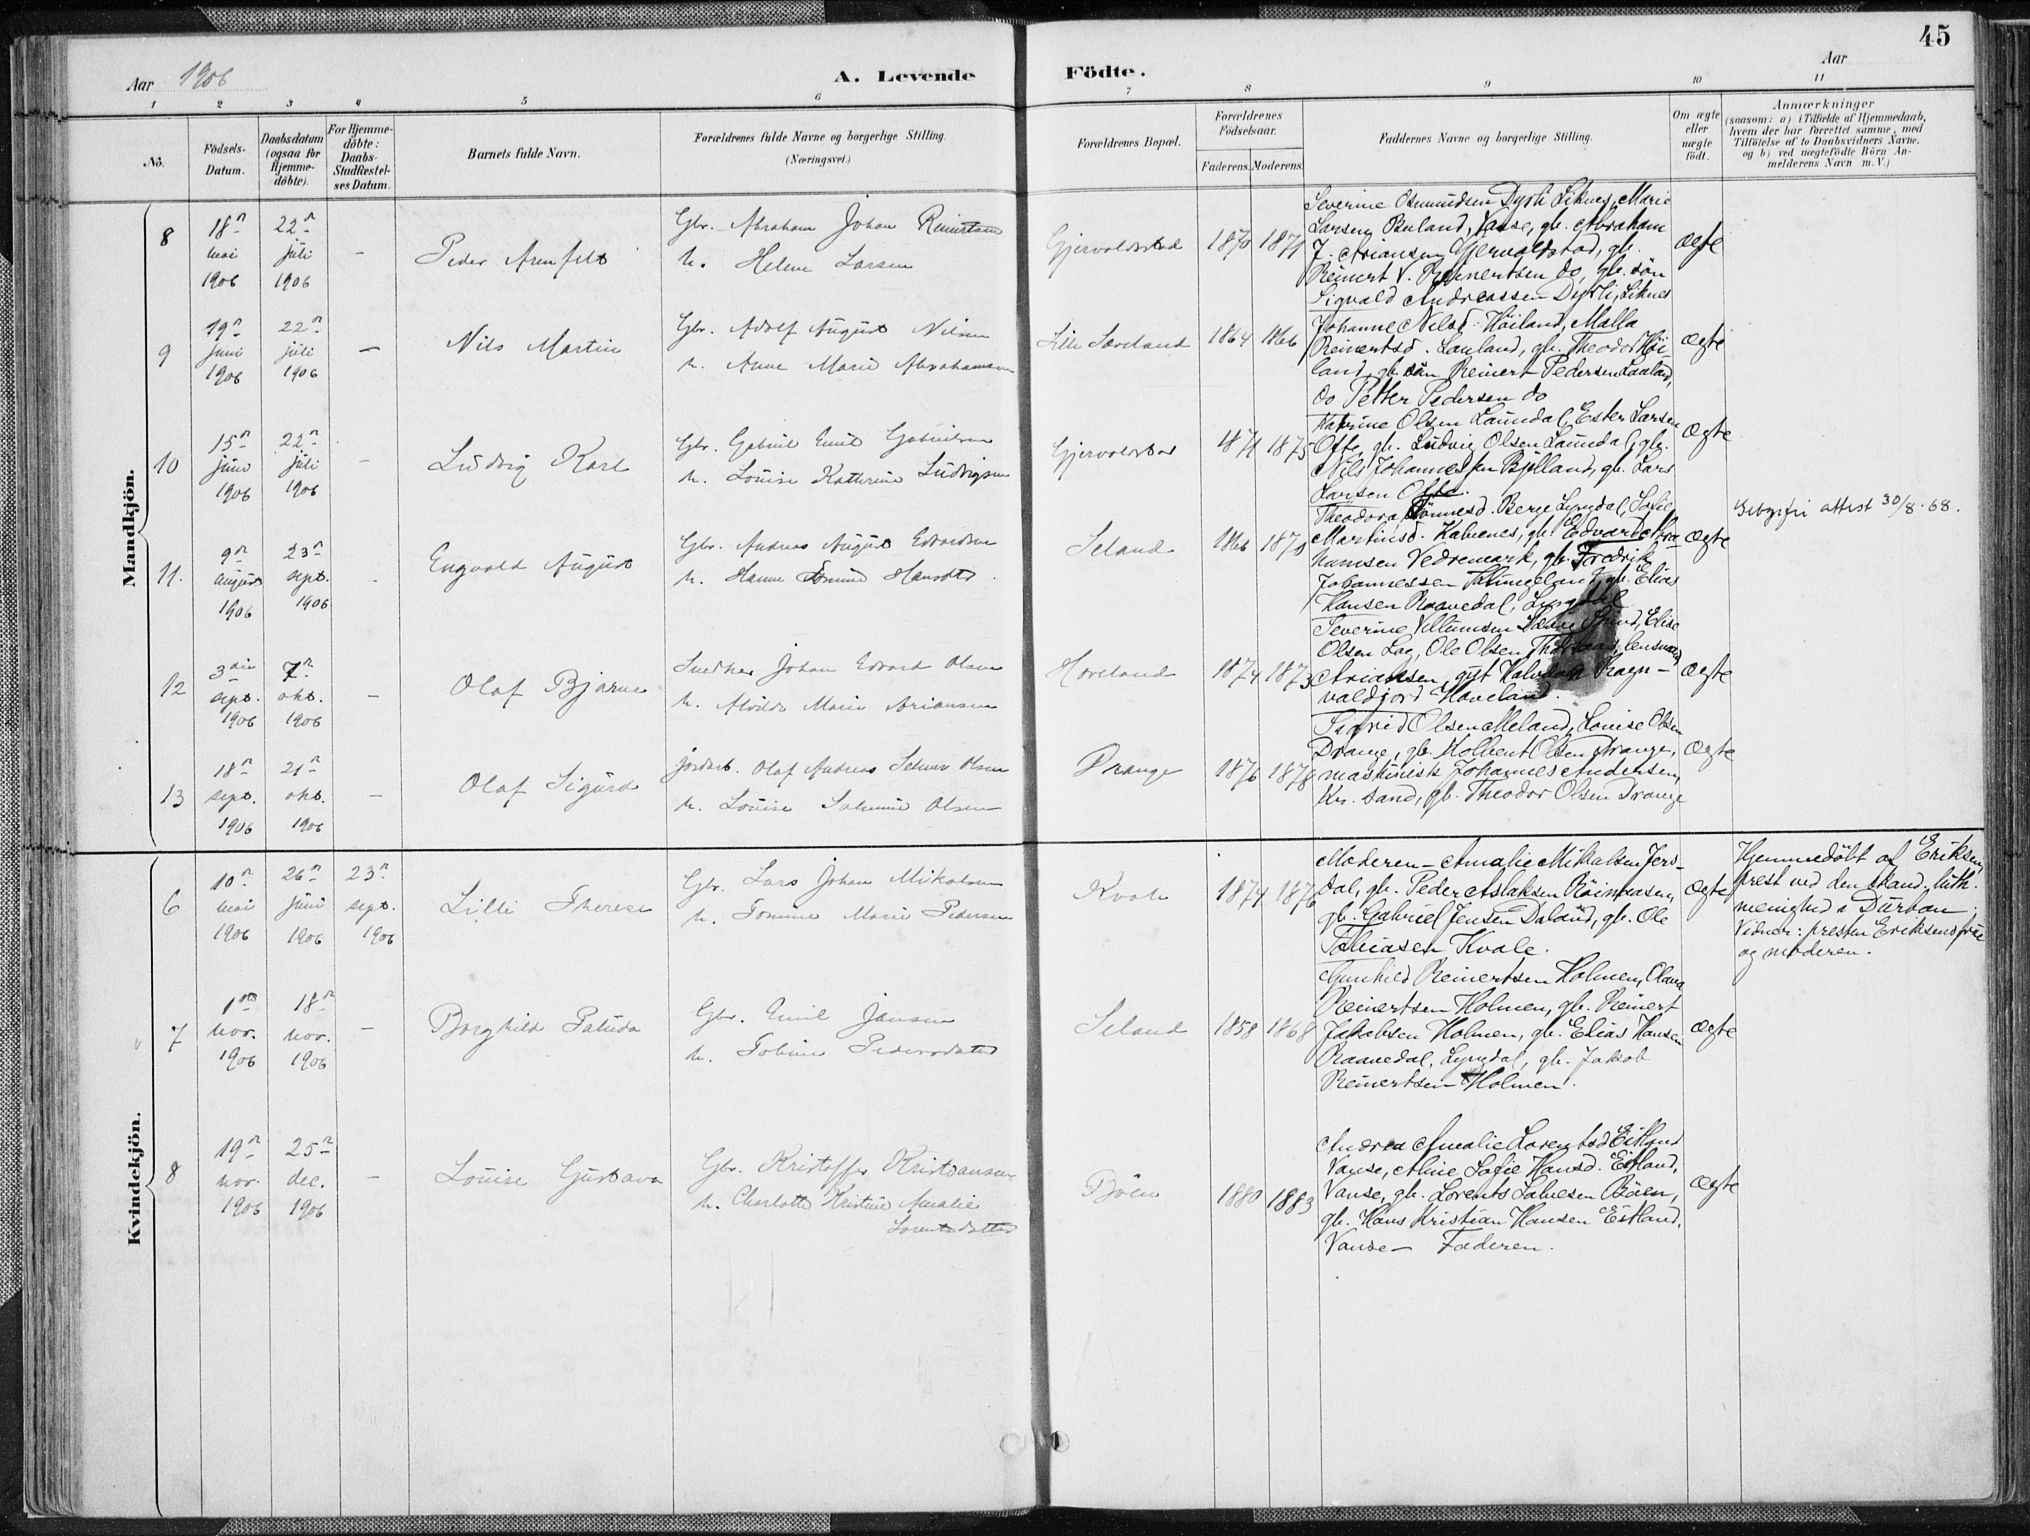 45
Aar 1906
A. Levende Födte.
Aar
1 2 3 4 5 6 7 8 9 10 11
No.
Födsels-
Datum.
Daabsdatum
(ogsaa for
Hjemme-
döbte).
For Hjemme-
döbte:
Daabs-
Stadfæstel-
ses Datum.
Barnets fulde Navn.
Forældrenes fulde Navne og borgerlige Stilling.
(Næringsvei.)
Forældrenes Bopæl.
Forældrenes
Födselsaar.
Faderens. Moderens.
Faddernes Navne og borgerlige Stilling.
Om ægte
eller
uægte
födt.
Anmærkninger
(saasom: a) i Tilfælde af Hjemmedaab,
hvem der har forrettet samme, med
Tilföielse af to Daabsvidners Navne.
og b) ved uægtefödte Börn An-
melderens Navn m. V.)
Mandkjön.
8
18n
mai
1906
22n
juli
1906
–
Peder Arnfelt
Gbr. Abraham Johan Reinertsen
h. Helene Larsen
Gjervoldstad
1870 1871
Severine Osmundsen Dyrli Liknes, Marie
Larsen Buland, Vanse, gb. Abraham
J. Ariansen Gjervoldstad, gb.
Reinert V. Reinertsen do, gb. sön
Sigvald Andreassen Dyrli, Liknes
Ægte
9
19n
juni
1906
22n
juli
1906
–
Nils Martin
Gbr. Adolf August Nilsen
h. Anne Marie Abrahamsen
Lille Sæveland
1864 1866
Johanne Nilsd. Höiland, Malla
Reinertsd. Lauland, gb. Theodor Höi-
land, gb. sön Reinert Pedersen Laaland,
do Petter Pedersen do
Ægte
10
15n
juni
1906
22n
juli
1906
–
Ludvig Karl
Gbr. Gabriel Emil Gabrielsen
h. Louise Kathrine Ludvigsen
Gjervoldstad
1871 1875
Katrine Olsen Laundal, Ester Larsen
Ofte, gb. Ludvig Olsen Laundal, gb.
Nils Johannessen Bjelland, gb. Lars
Larsen Ofte.
Ægte
11.
9n
august
1906
23n
sept.
1906
–
Engvald August
Gbr. Andreas August Edvardsen
h. Hanne Hansdtr.
Seland
1866 1870
Theodora Tönnesd. Berge Lyngdal, Sofie
Martinsd. Kalvenes, gb. Edvard Abra-
hamsen Vedremark, gb. Fredrik
Johannessen, gb. Elias
Hansen Raavedal, Lyngdal
Ægte
attest 30/8-68.
12
3die
sept.
1906
7n
okt.
1906
–
Olaf Bjarne
Snedker Johan Edvard Olsen
h. Alvilde Marie Ariansen
Haveland
1874 1873
Severine Villumsen, Elise
Olsen Lag, Ole Olsen, lensmand
Ariansen, gift Halvdan Ragn-
valdfjord Haveland.
Ægte
13
18n
sept.
1906
21n
okt.
1906
–
Olaf Sigurd
Jordarb. Olaf Andreas Olsen
h. Louise Salmine Olsen
Drange
1876 1878
Sigrid Olsen Meland, Louise Olsen
Drange, gb. Holbent Olsen Drange,
maskinist Johannes Andersen,
Kr. sand, gb. Theodor Olsen Drange
Ægte
Kvindekjön.
6
10n
mai
1906
26n
juni
1906
23n
sept.
1906
Lilli Therese
Gbr. Lars Johan Mikalsen
h. Tomine Marie Pedersen
Kvale
1874 1876
Moderen – Amalie Mikalsen Jers-
dal, gb. Peder Aslaksen Röinaasen,
gb. Gabriel Jensen Daland, gb. Ole
Tobiasen Kvale.
Ægte
Hjemmedöbt af Eriksen,
prest ved den skand. luth.
menighed i Durban.
Vidner: presten Eriksens frue
og moderen.
7
1ste
nov.
1906
18n
nov.
1906
–
Borghild Paluda
Gbr. Emil Jansen
h. Tobine Pedersdatter
Seland
1858 1868
Gunhild Reinertsen Holmen, Olava
Reinertsen Holmen, gb. Reinert
Jakobsen Holmen, gb. Elias Hansen
Raavedal, Lyngdal, gb. Jakob
Reinertsen Holmen.
Ægte
8
19n
nov.
1906
25n
dec.
1906
–
Louise Gustava
Gbr. Kristoffer Kristiansen
h. Charlotte Kristine Amalie
Lorentsdatter
Böen
1880 1883
Andrea Amalie Lorentsd Eitland
Vanse, Aline Sofie Hansd. Eitland,
Vanse, gb. Lorents Salvesen Böen,
gb. Hans Kristian Hansen Eitland,
Vanse – Faderen.
Ægte